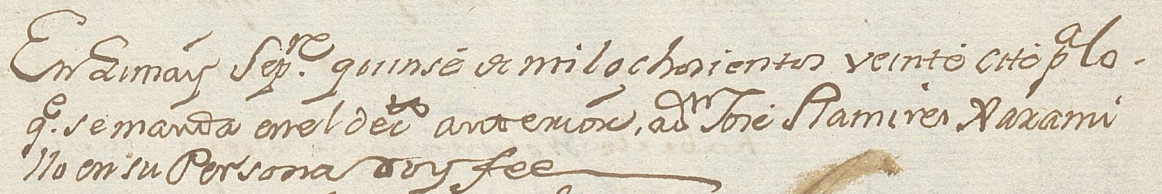 En Lima y Sep.re quinse de mil ochosientos veinte cité pa lo
q.e se manda en el decto anterior, a Dn José Ramires Naxami
llo en su Persona doy fee